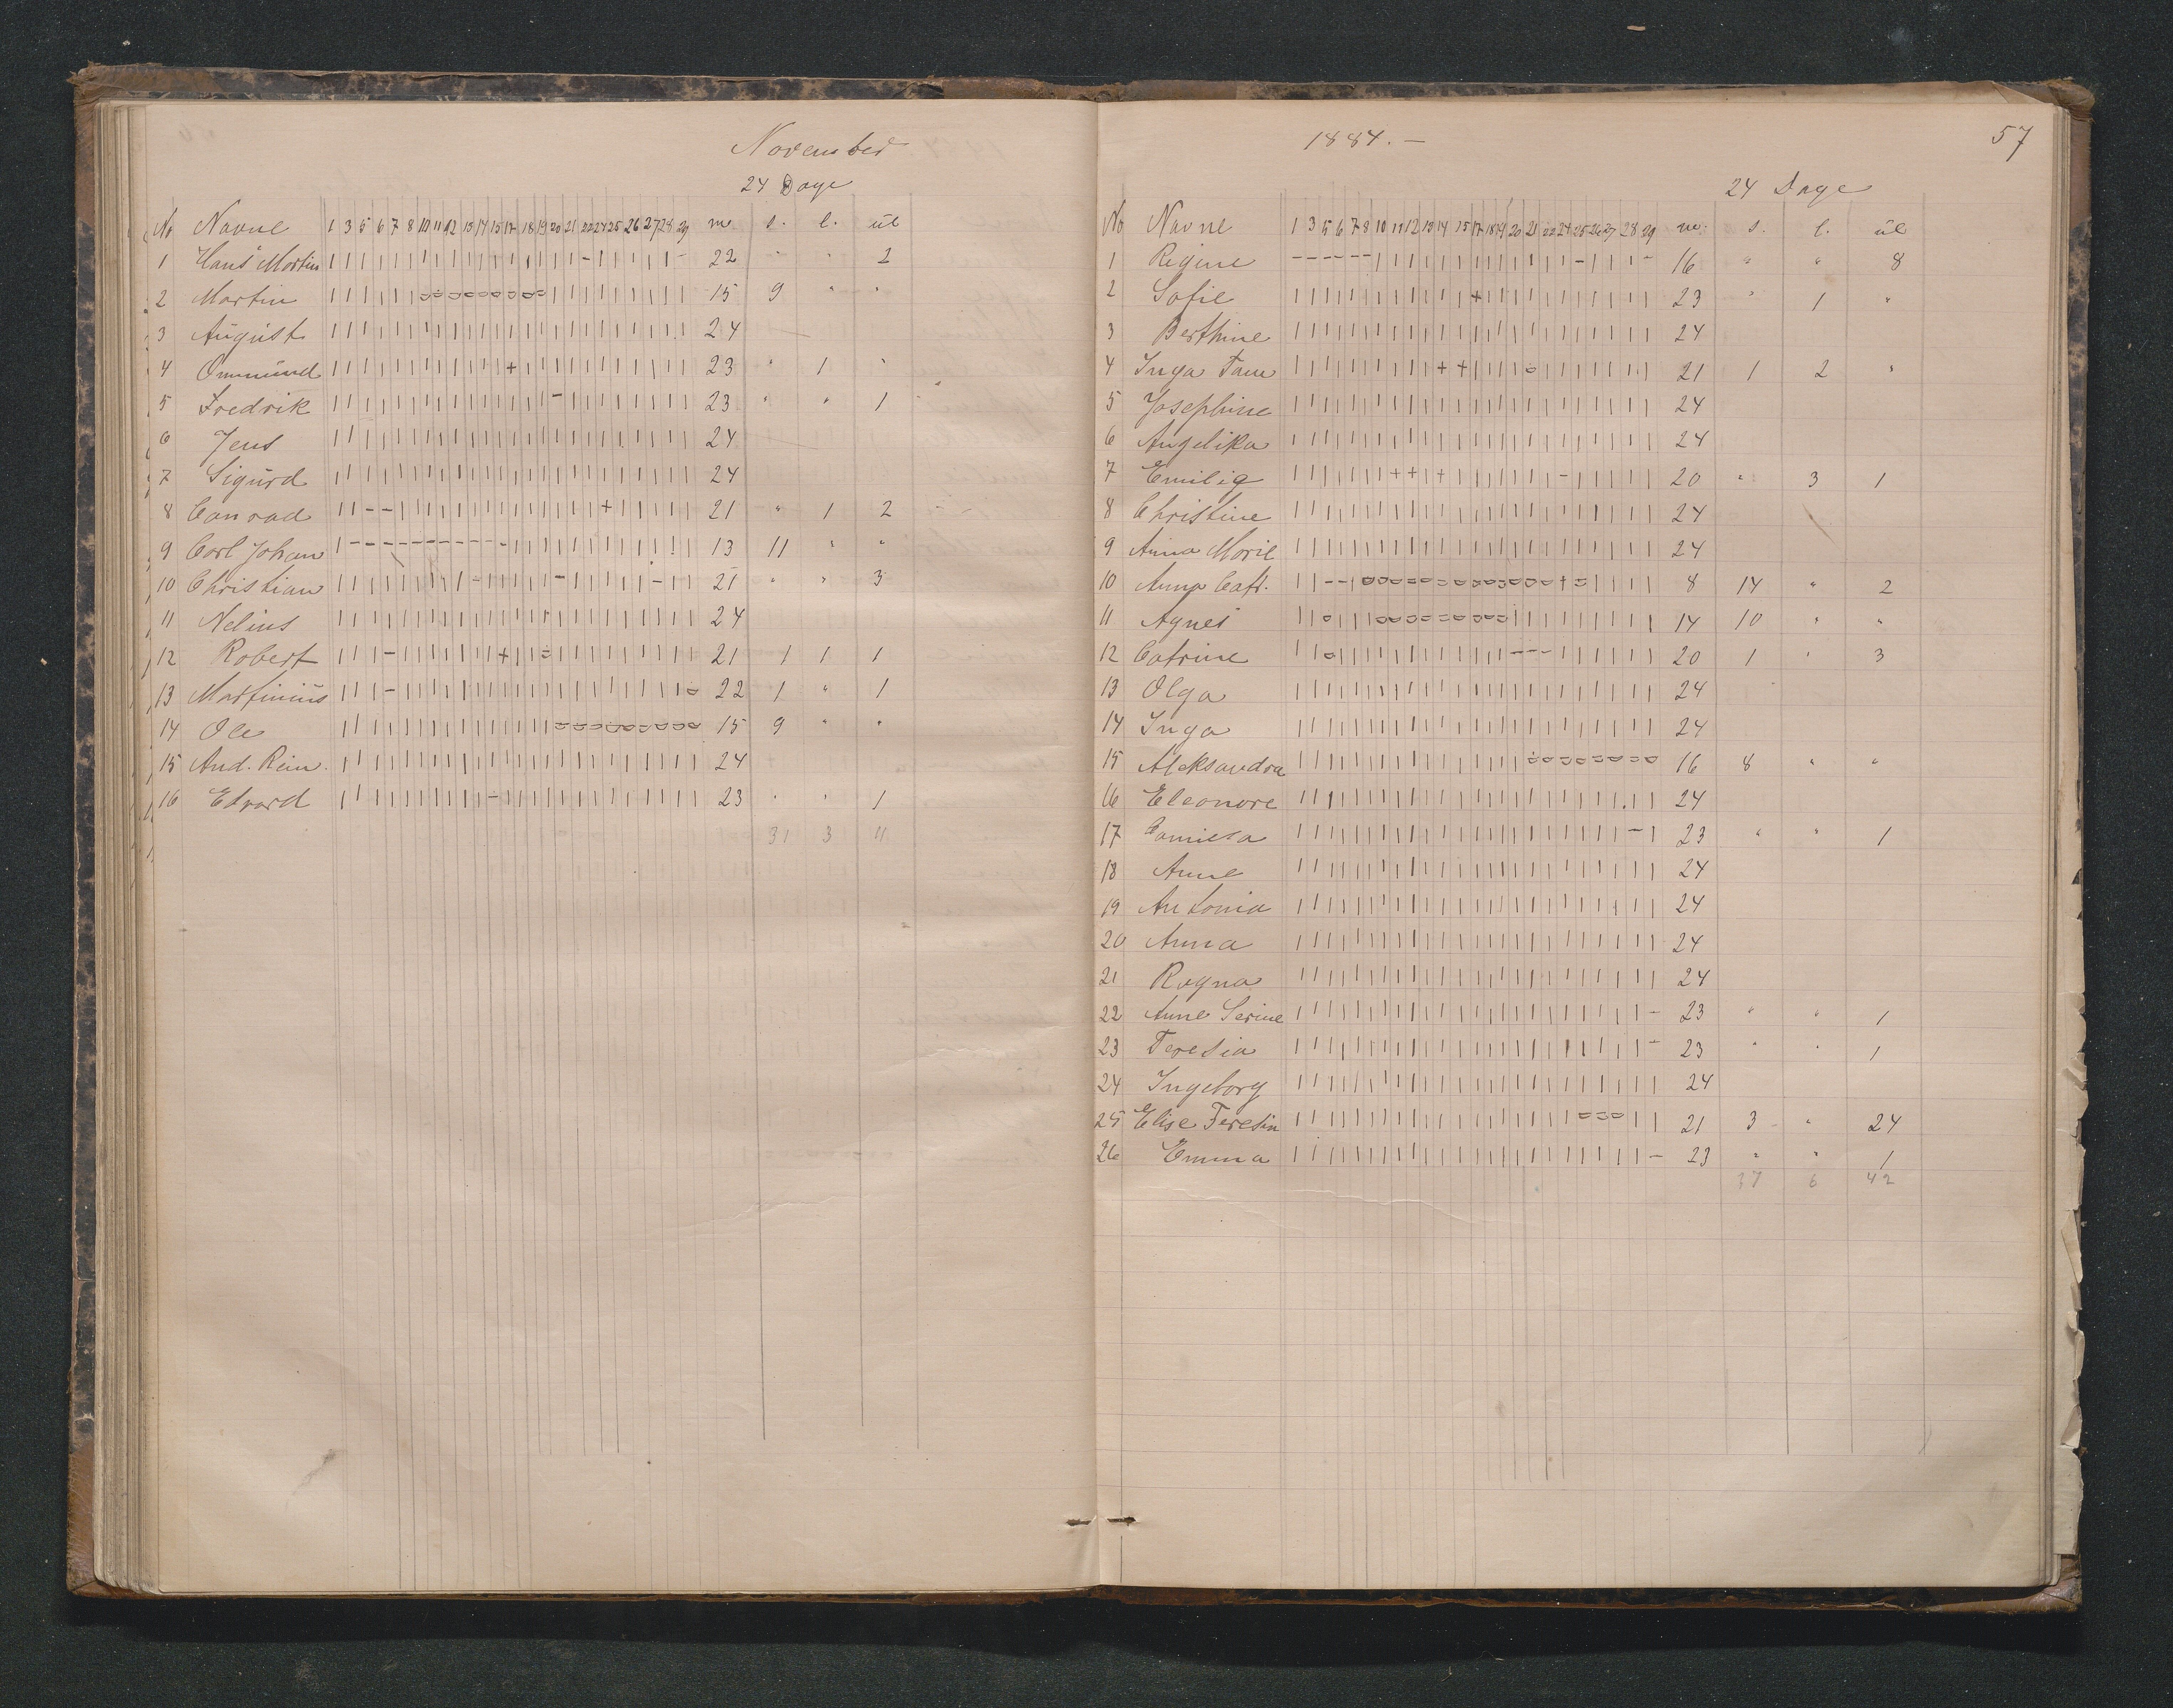 November
24 Dage
No Navne 1 3 5 6 7 8 10 11 12 13 14 15 17 18 19 20 21 22 24 25 26 27 28 29 m. s. l. ul
1 Hans Martin 22 " " 2
2 Martin 15 9 " "
3 August 24
4 Ommund 23 " 1 "
5 Fredrik 23 " " 1
6 Jens 24
7 Sigurd 24
8 Conrad 21 " 1 2
9 Carl Johan 13 11 " "
10 Christian 21 " " 3
11 Nelius 24
12 Robert 21 1 1 1
13 Martinius 22 1 " 1
14 Ole 15 9 " "
15 And. Rein. 24
16 Edvard 23 " " 1
31 3 11
1884. —
57
24 Dage
No Navne 1 3 5 6 7 8 10 11 12 13 14 15 17 18 19 20 21 22 24 25 26 27 28 29 m. s. l. ul
1 Regine 16 " " 8
2 Sofie 23 " 1 "
3 Berthine 24
4 Inga 21 1 2 "
5 Josephine 24
6 Angelika 24
7 Emilie 20 " 3 1
8 Christine 24
9 Anna Marie 24
10 Anna Cath. 8 14 " 2
11 Agnes 14 10 " "
12 Catrine 20 1 " 3
13 Olga 24
14 Inga 24
15 Aleksandra 16 8 " "
16 Eleonore 24
17 Camilla 23 " " 1
18 Anne 24
19 Antonia 24
20 Anna 24
21 Ragna 24
22 Anne Serine 23 " " 1
23 Teresia 23 " " 1
24 Ingeborg 24
25 Elise Teresia 21 3 " 24
26 Emma 23 " " 1
37 6 42